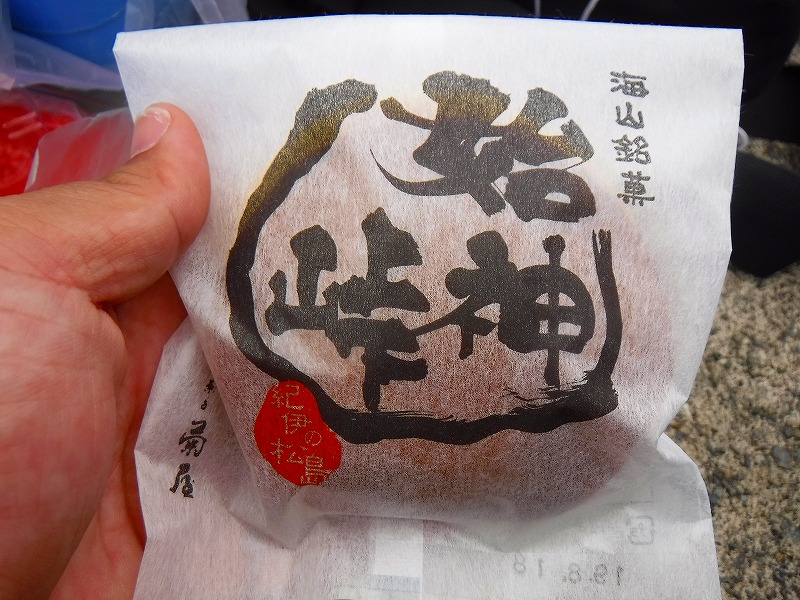 海山銘菓
始神
峠
紀伊の
松島
菊屋
19.8.18